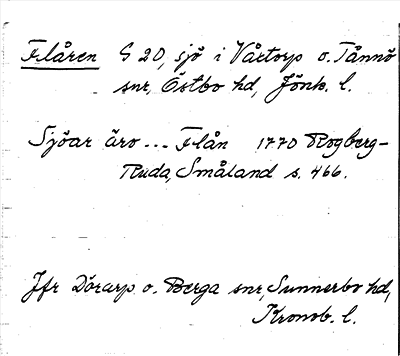 Flåren G 20, sjö i Vårtorp o. Tånnö
snr, Östbo hd, Jönk. l.
Sjöar äro ... Flån 1770 Rogberg-
Ruda, Småland s. 466.
Jfr Dörarp o. Berga snr, Sunnerbo hd,
Kronob. l.